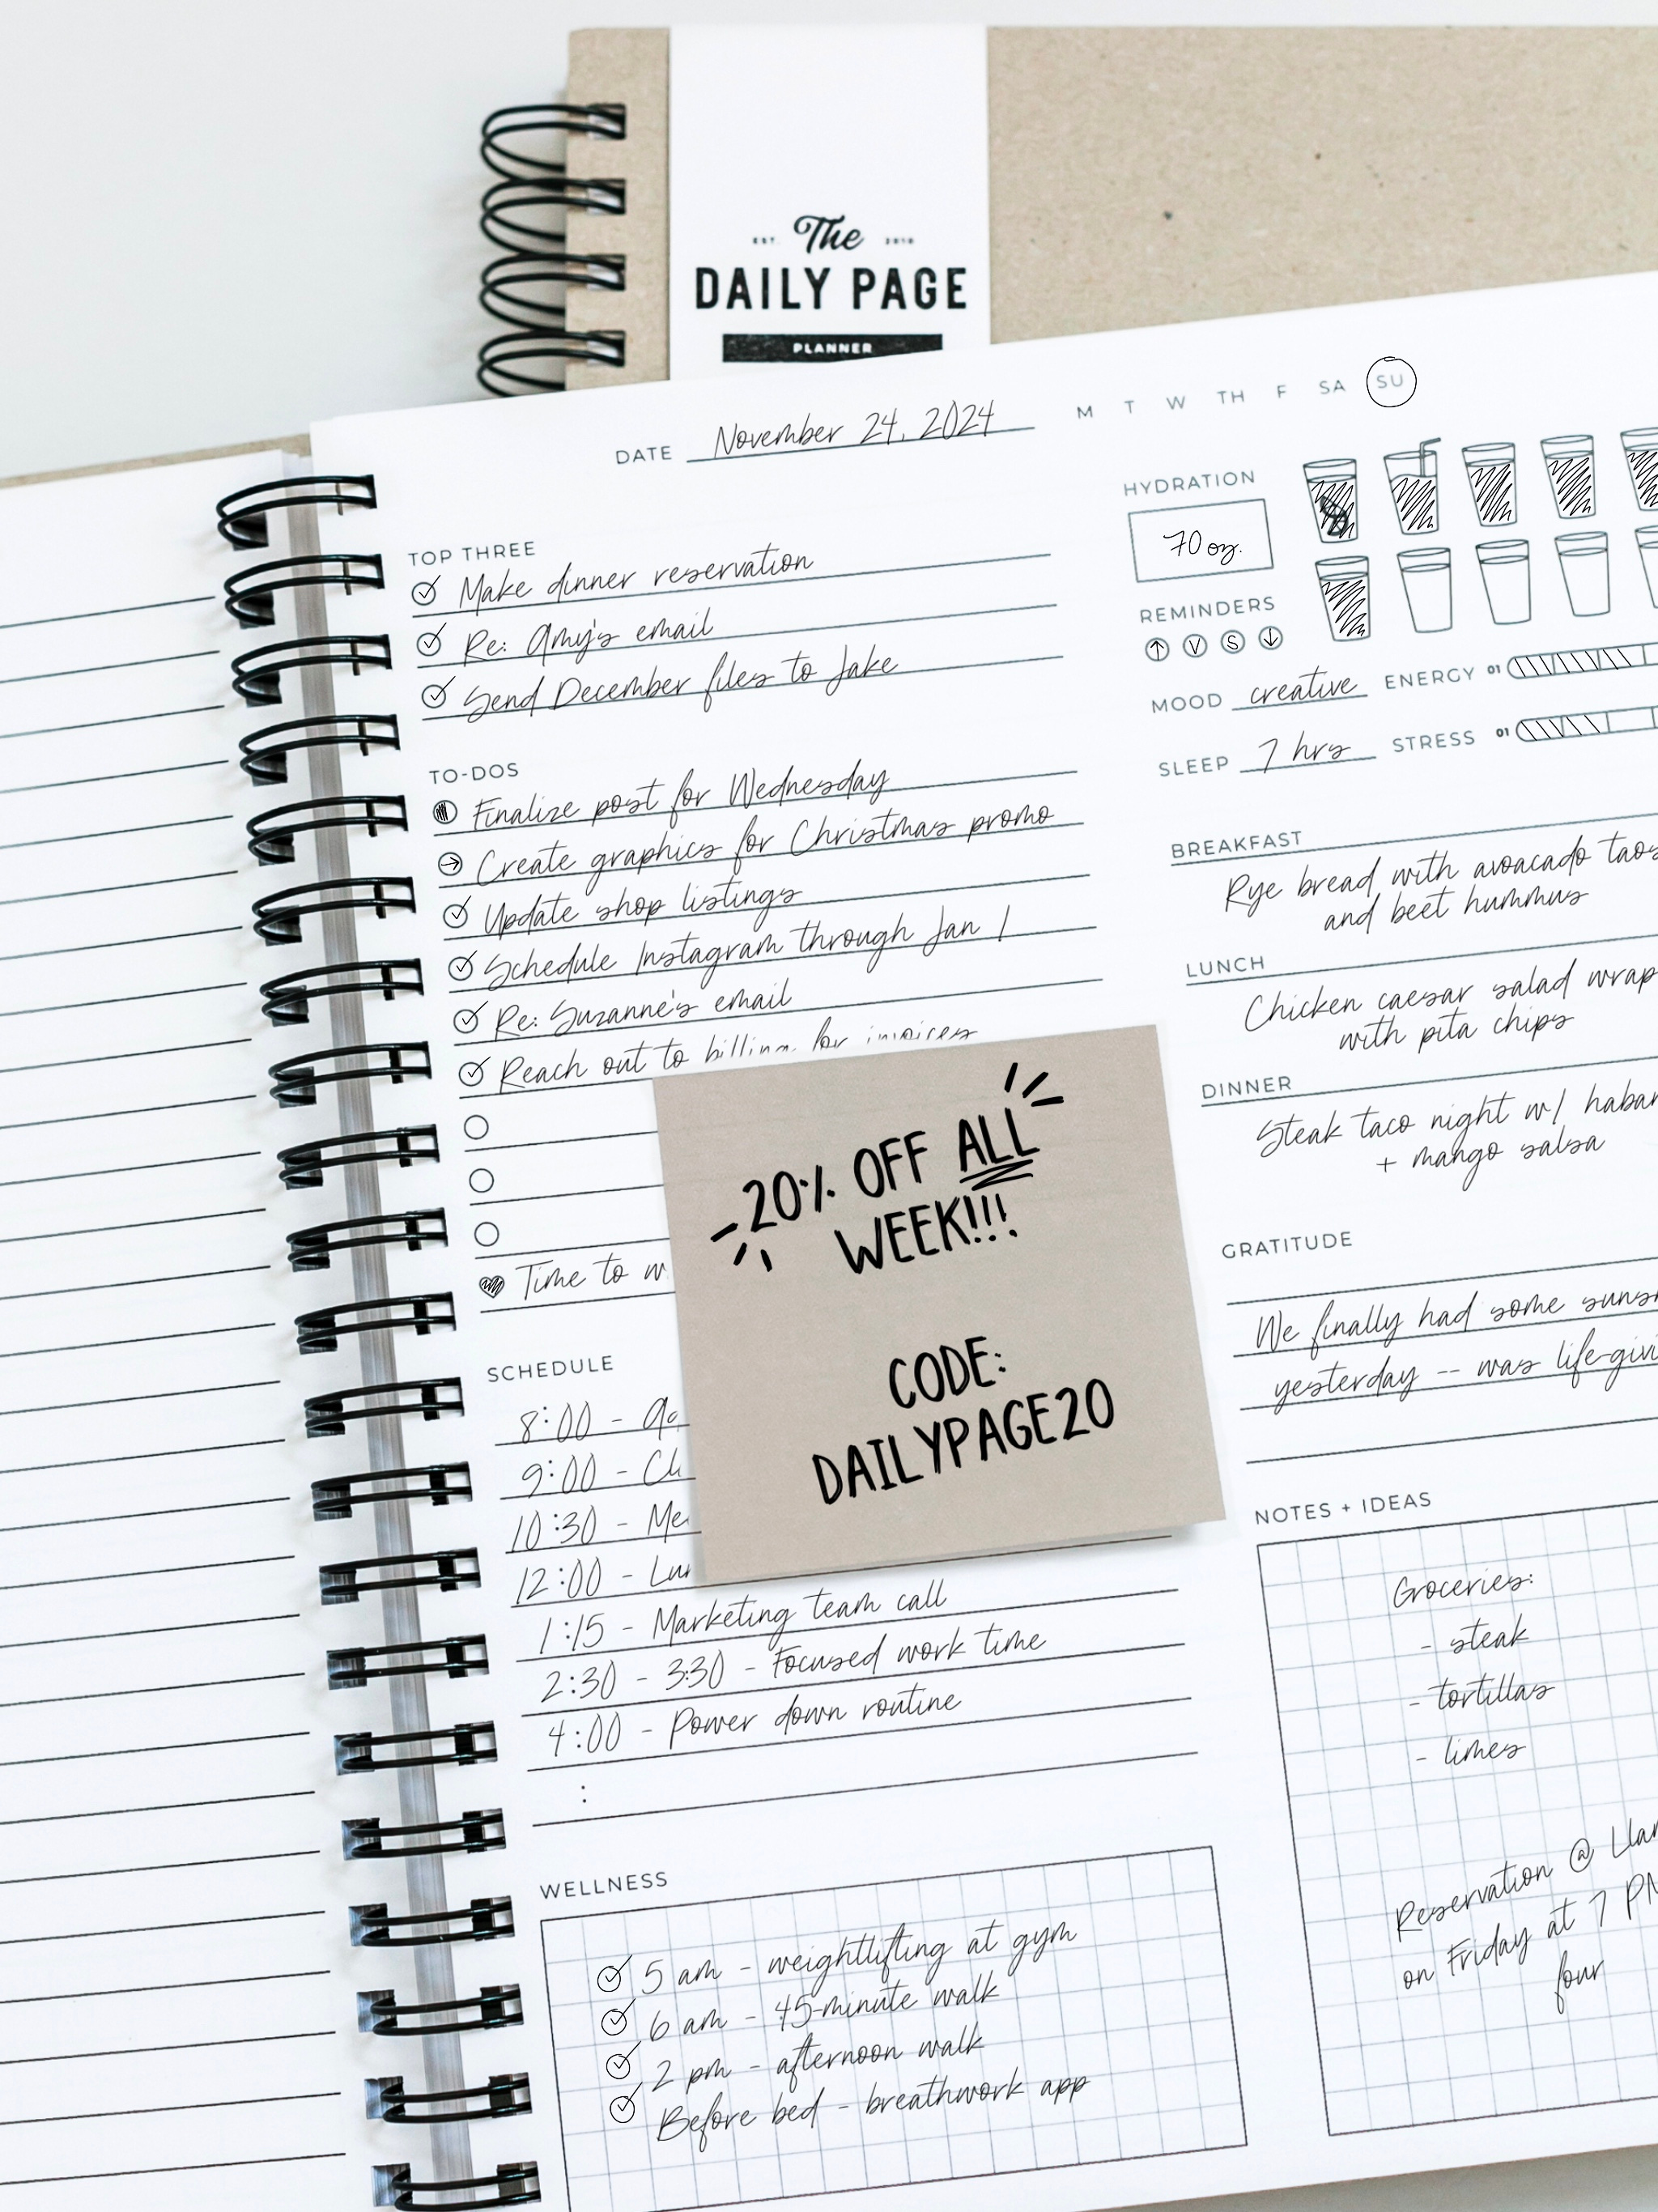 EST. The 2010
DAILY PAGE
PLANNER
DATE November 24, 2024
M T W TH F SA SU
TOP THREE
Make dinner reservation
Re: Amy's email
Send December files to Jake
TO-DOS
Finalize post for Wednesday
Create graphics for Christmas promo
Update shop listings
Schedule Instagram through Jan 1
Re: Suzanne's email
Reach out to billing for invoices
Time to
20% OFF ALL
WEEK!!!
CODE:
DAILYPAGE20
SCHEDULE
8:00 -
9:00 -
10:30 -
12:00 -
1:15 - Marketing team call
2:30 - 3:30 - Focused work time
4:00 - Power down routine
:
WELLNESS
5 am - weightlifting at gym
6 am - 45-minute walk
2 pm - afternoon walk
Before bed - breathwork app
HYDRATION
70 oz.
REMINDERS
V S
MOOD creative ENERGY 01
SLEEP 7 hrs STRESS 01
BREAKFAST
Rye bread with avoacado
and beet hummus
LUNCH
Chicken caesar salad wrap
with pita chips
DINNER
Steak taco night w/
+ mango salsa
GRATITUDE
We finally had some
yesterday -- was
NOTES + IDEAS
Groceries:
- steak
- tortillas
- limes
Reservation @
on Friday at 7
four